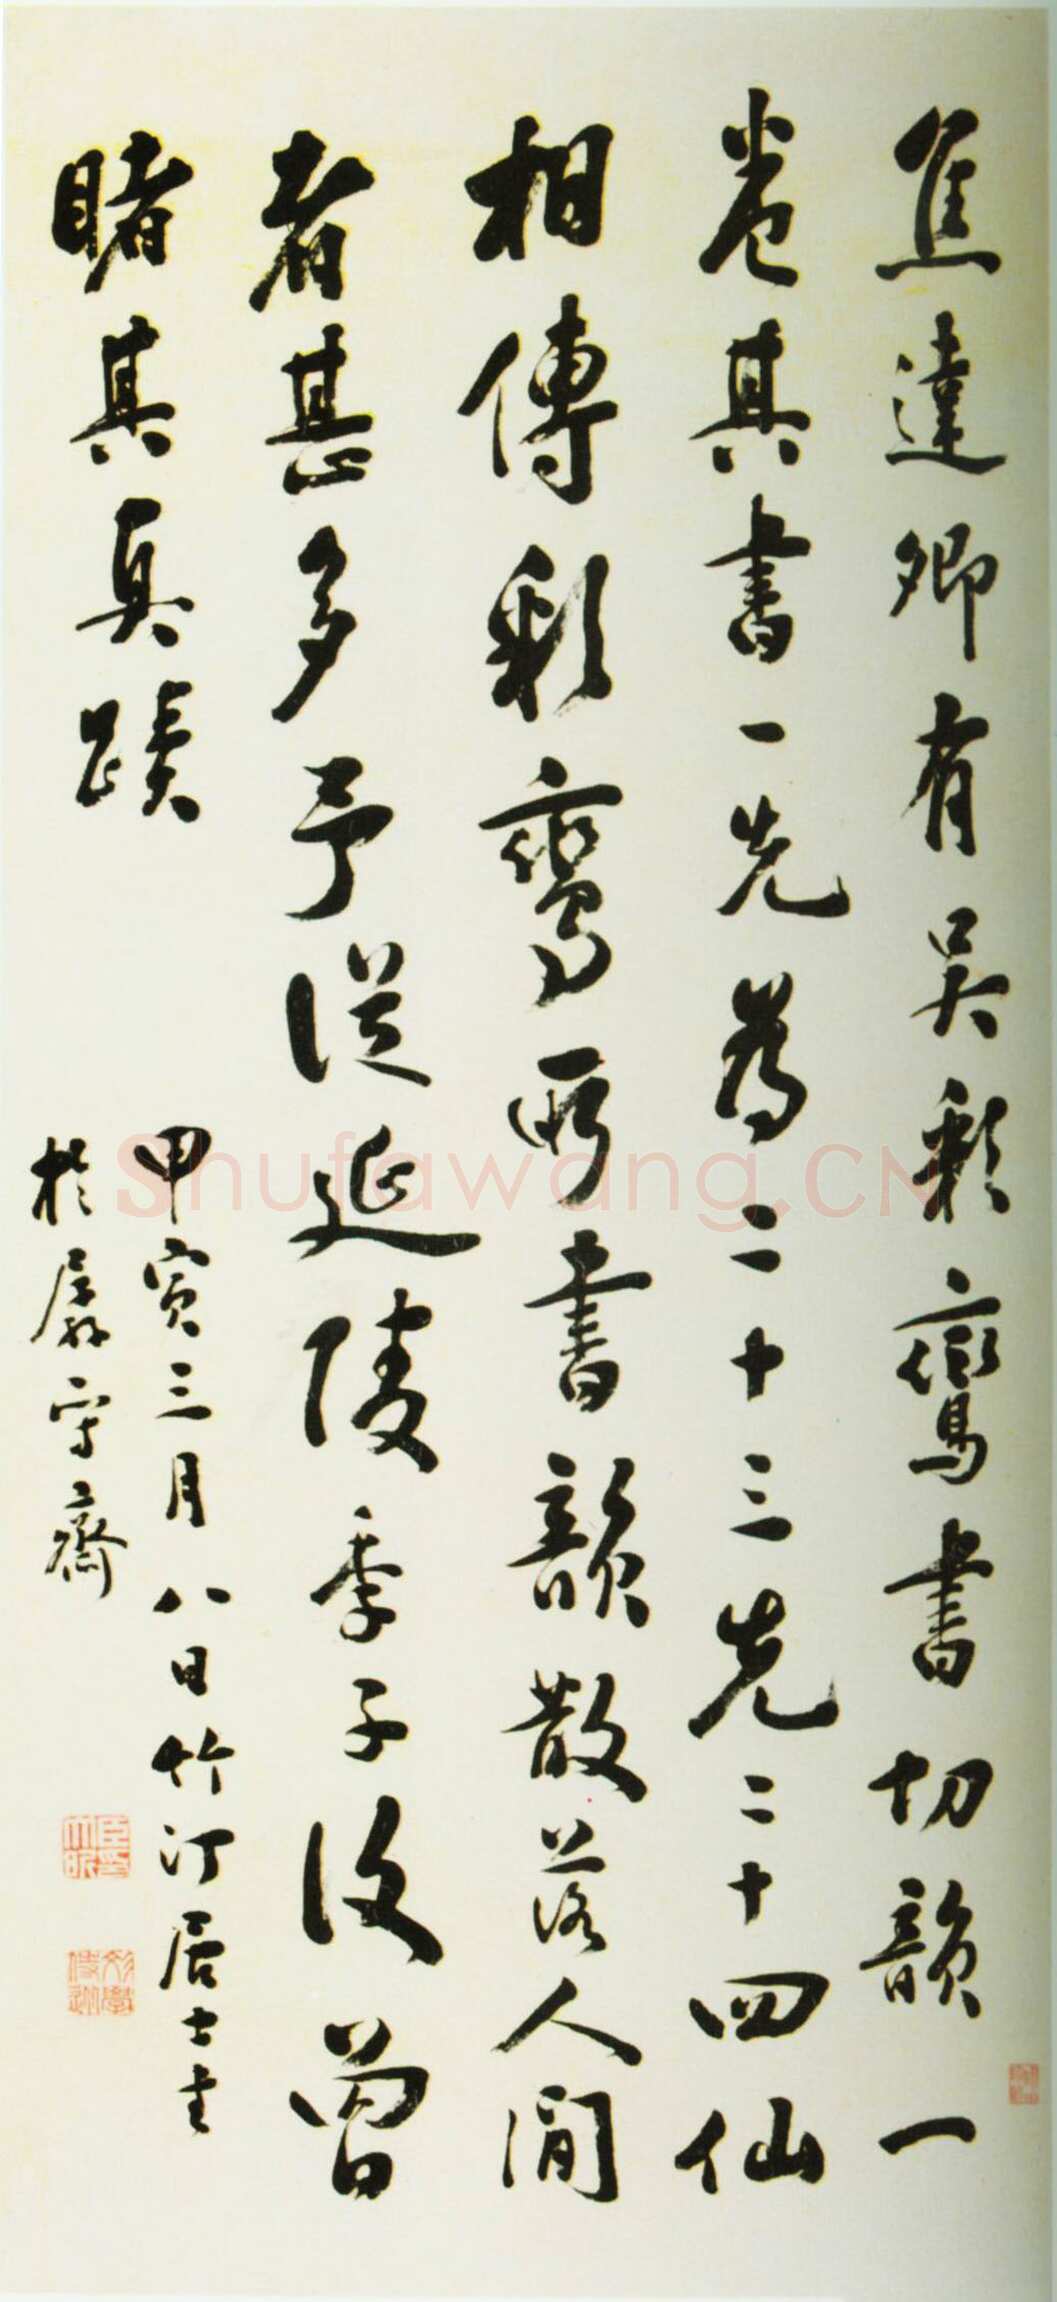 焦達卿有吳彩鸞書切韻一
卷其書一先為二十三先二十四仙
相傳彩鸞所書韻散落人間
者甚多予從延陵季子後曾
睹其真蹟
甲寅三月八日竹汀居士書
於孱守齋
臣印大昕
Shufawang.CN